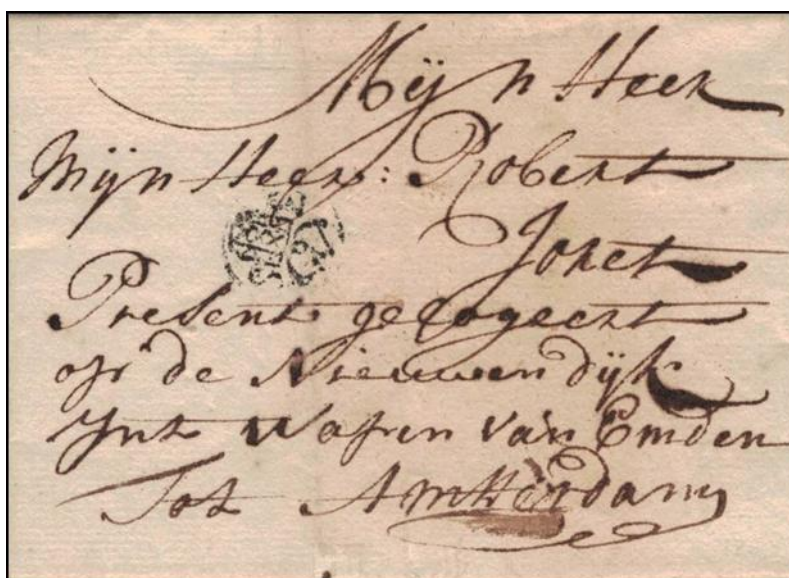 Mijn Heer
Mijn Heer: Robert
Joret
Present gelogeert
op de Nieuwendijk
Jnt Wapen van Emden
Tot Amsterdam